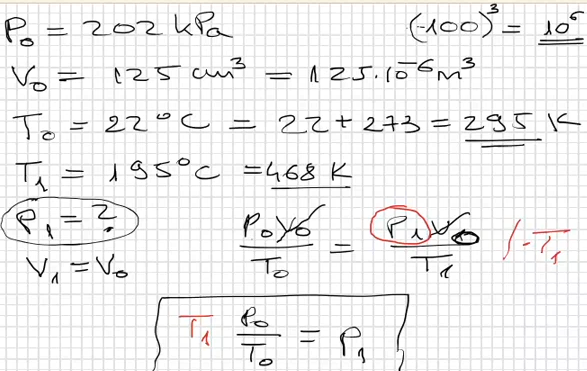 P₀ = 202 kPa (-100)³ = 10⁶
V₀ = 125 cm³ = 125.10⁻⁶ m³
T₀ = 22°C = 22 + 273 = 295 K
T₁ = 195°C = 468 K
P₁ = ?
V₁ = V₀
P₀V₀/T₀ = P₁V₀/T₁ /·T₁
T₁ P₀/T₀ = P₁